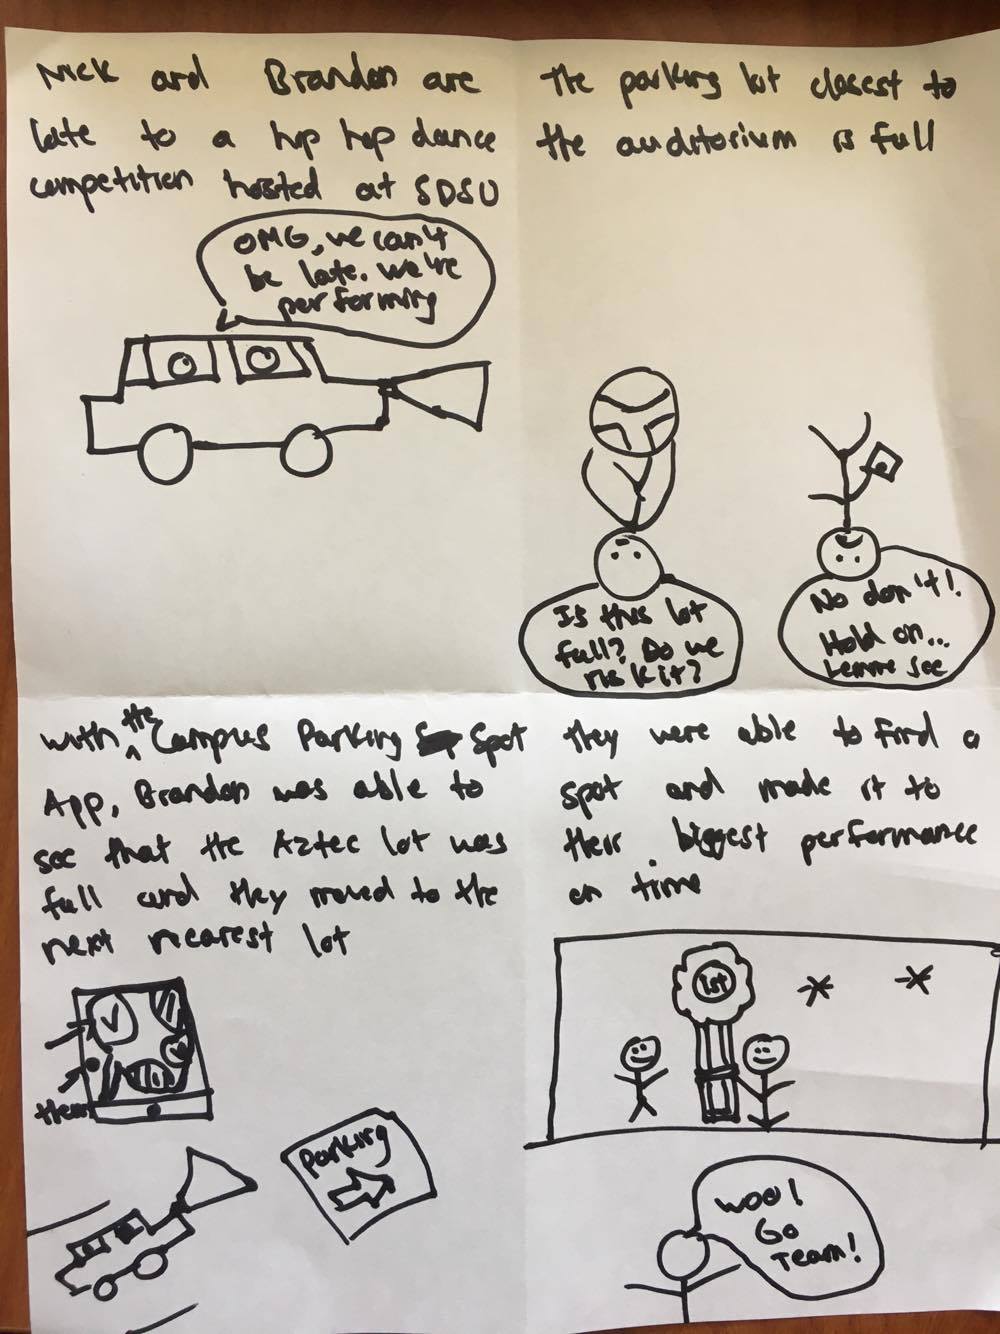 Nick and Brandon are
late to a hip hop dance
competition hosted at SDSU
OMG, we can't
be late. We're
performing
The parking lot closest to
the auditorium is full
Is this lot
full? Do we
risk it?
No don't!
Hold on...
Lemme see
With the Campus Parking Spot
App, Brandon was able to
see that the Aztec lot was
full and they moved to the
next nearest lot
them
Parking
They were able to find a
spot and made it to
their biggest performance
on time
1st
Woo!
Go
Team!